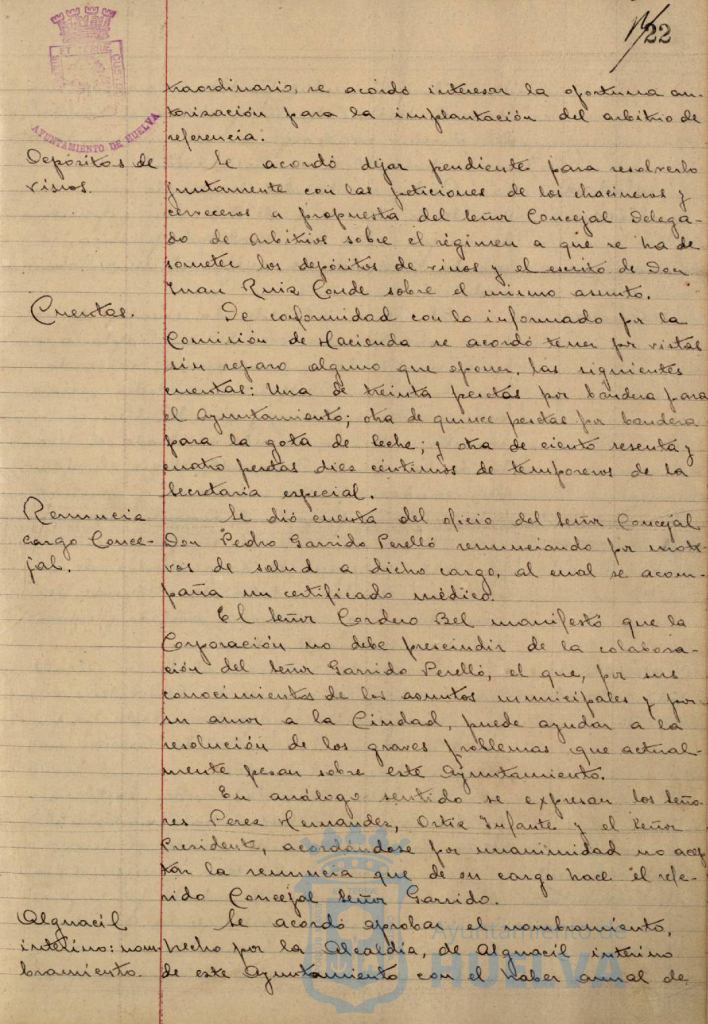 22
AYUNTAMIENTO DE HUELVA
traordinario, se acordó interesar la oportuna au-
torización para la implantación del arbitrio de
referencia.
Depósitos de
vinos.
Se acordó dejar pendiente para resolverlo
juntamente con las peticiones de los chacineros y
cerveceros a propuesta del Señor Concejal Delega-
do de Arbitrios sobre el régimen a que se ha de
someter los depósitos de vinos y el escrito de Don
Juan Ruiz Conde sobre el mismo asunto.
Cuentas.
De conformidad con lo informado por la
Comisión de Hacienda se acordó tener por vistas
sin reparo alguno que oponer, las siguientes
cuentas: Una de treinta pesetas por bandera para
el Ayuntamiento; otra de quince pesetas por bandera
para la gota de leche; y otra de ciento sesenta y
cuatro pesetas diez céntimos de temporeros de la
Secretaría especial.
Renuncia
cargo Conce-
jal.
Se dió cuenta del oficio del Señor Concejal
Don Pedro Garrido Perelló renunciando por moti-
vos de salud a dicho cargo, al cual se acom-
paña un certificado médico.
El Señor Cordero Bel manifestó que la
Corporación no debe prescindir de la colabora-
ción del Señor Garrido Perelló, el que, por sus
conocimientos de los asuntos municipales y por
su amor a la Ciudad, puede ayudar a la
resolución de los graves problemas que actual-
mente pesan sobre este Ayuntamiento.
En análogo sentido se expresan los Seño-
res Perez Hernandez, Ortiz Infante y el Señor
Presidente, acordándose por unanimidad no acep-
tar la renuncia que de su cargo hace el refe-
rido Concejal Señor Garrido.
Alguacil
interino: nom-
bramiento.
Se acordó aprobar el nombramiento,
hecho por la Alcaldía, de Alguacil interino
de este Ayuntamiento con el haber anual de
Ayuntamiento
HUELVA